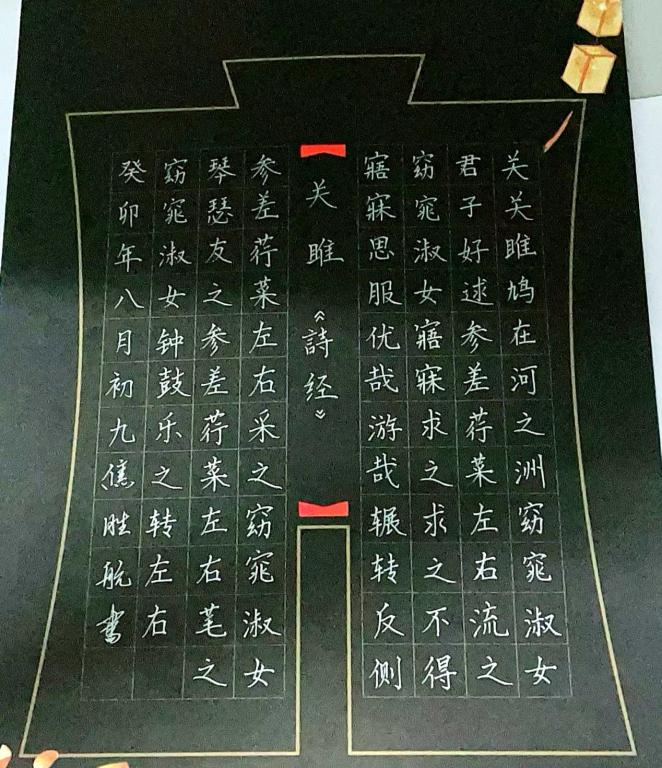 关关雎鸠在河之洲窈窕淑女
君子好逑参差荇菜左右流之
窈窕淑女寤寐求之求之不得
寤寐思服优哉游哉辗转反侧
关雎《詩经》
参差荇菜左右采之窈窕淑女
琴瑟友之参差荇菜左右芼之
窈窕淑女钟鼓乐之转左右
癸卯年八月初九胜航書